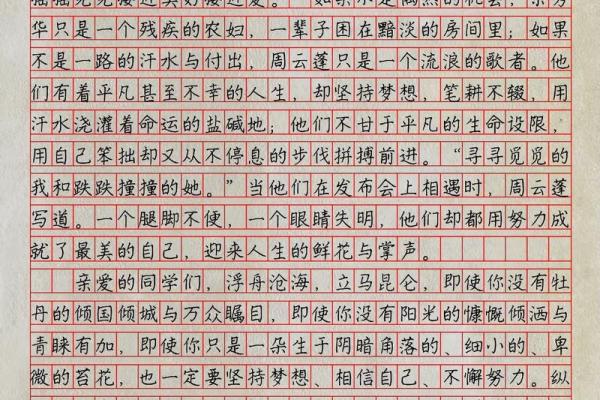 接近美好接近爱。”如果不是偶然的机会，余秀
华只是一个残疾的农妇，一辈子困在黯淡的房间里；如果
不是一路的汗水与付出，周云蓬只是一个流浪的歌者。他
们有着平凡甚至不幸的人生，却坚持梦想，笔耕不辍，用
汗水浇灌着命运的盐碱地；他们不甘于平凡的生命设限，
用自己笨拙却又从不停息的步伐拼搏前进。“寻寻觅觅的
我和跌跌撞撞的她。”当他们在发布会上相遇时，周云蓬
写道。一个腿脚不便，一个眼睛失明，他们却都用努力成
就了最美的自己，迎来人生的鲜花与掌声。
亲爱的同学们，浮舟沧海，立马昆仑，即使你没有牡
丹的倾国倾城与万众瞩目，即使你没有阳光的慷慨倾洒与
青睐有加，即使你只是一朵生于阴暗角落的、细小的、卑
微的苔花，也一定要坚持梦想、相信自己、不懈努力。纵